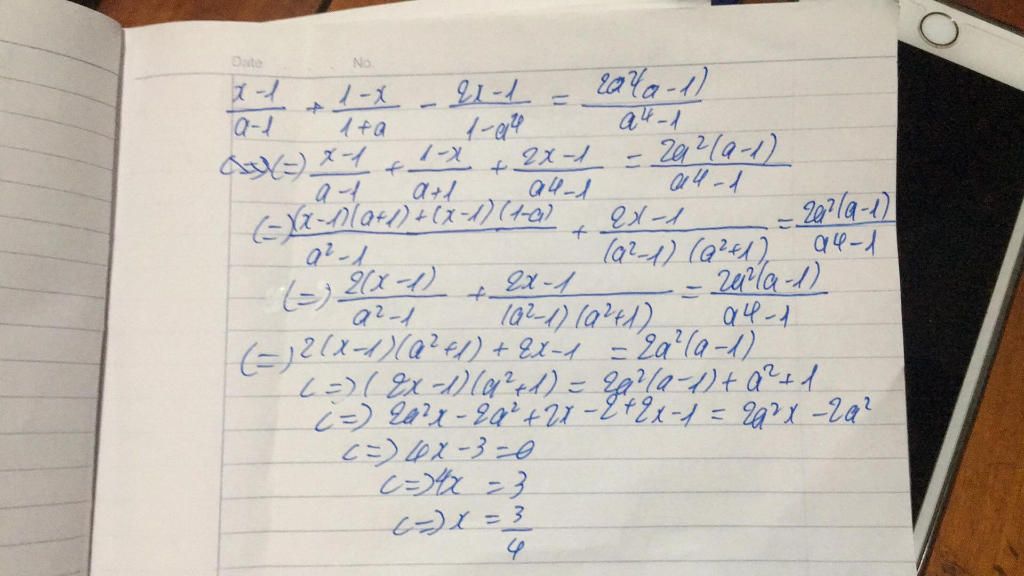 Date No.
x-1/a-1 + 1-x/1+a - 2x-1/1-a⁴ = 2a²(a-1)/a⁴-1
(=) x-1/a-1 + 1-x/a+1 + 2x-1/a⁴-1 = 2a²(a-1)/a⁴-1
(=) (x-1)(a+1)+(x-1)(1-a)/a²-1 + 2x-1/(a²-1)(a²+1) = 2a²(a-1)/a⁴-1
(=) 2(x-1)/a²-1 + 2x-1/(a²-1)(a²+1) = 2a²(a-1)/a⁴-1
(=) 2(x-1)(a²+1) + 2x-1 = 2a²(a-1)
(=) (2x-1)(a²+1) = 2a²(a-1) + a²+1
(=) 2a²x - 2a² + 2x - 2 + 2x - 1 = 2a²x - 2a²
(=) 4x - 3 = 0
(=) 4x = 3
(=) x = 3/4